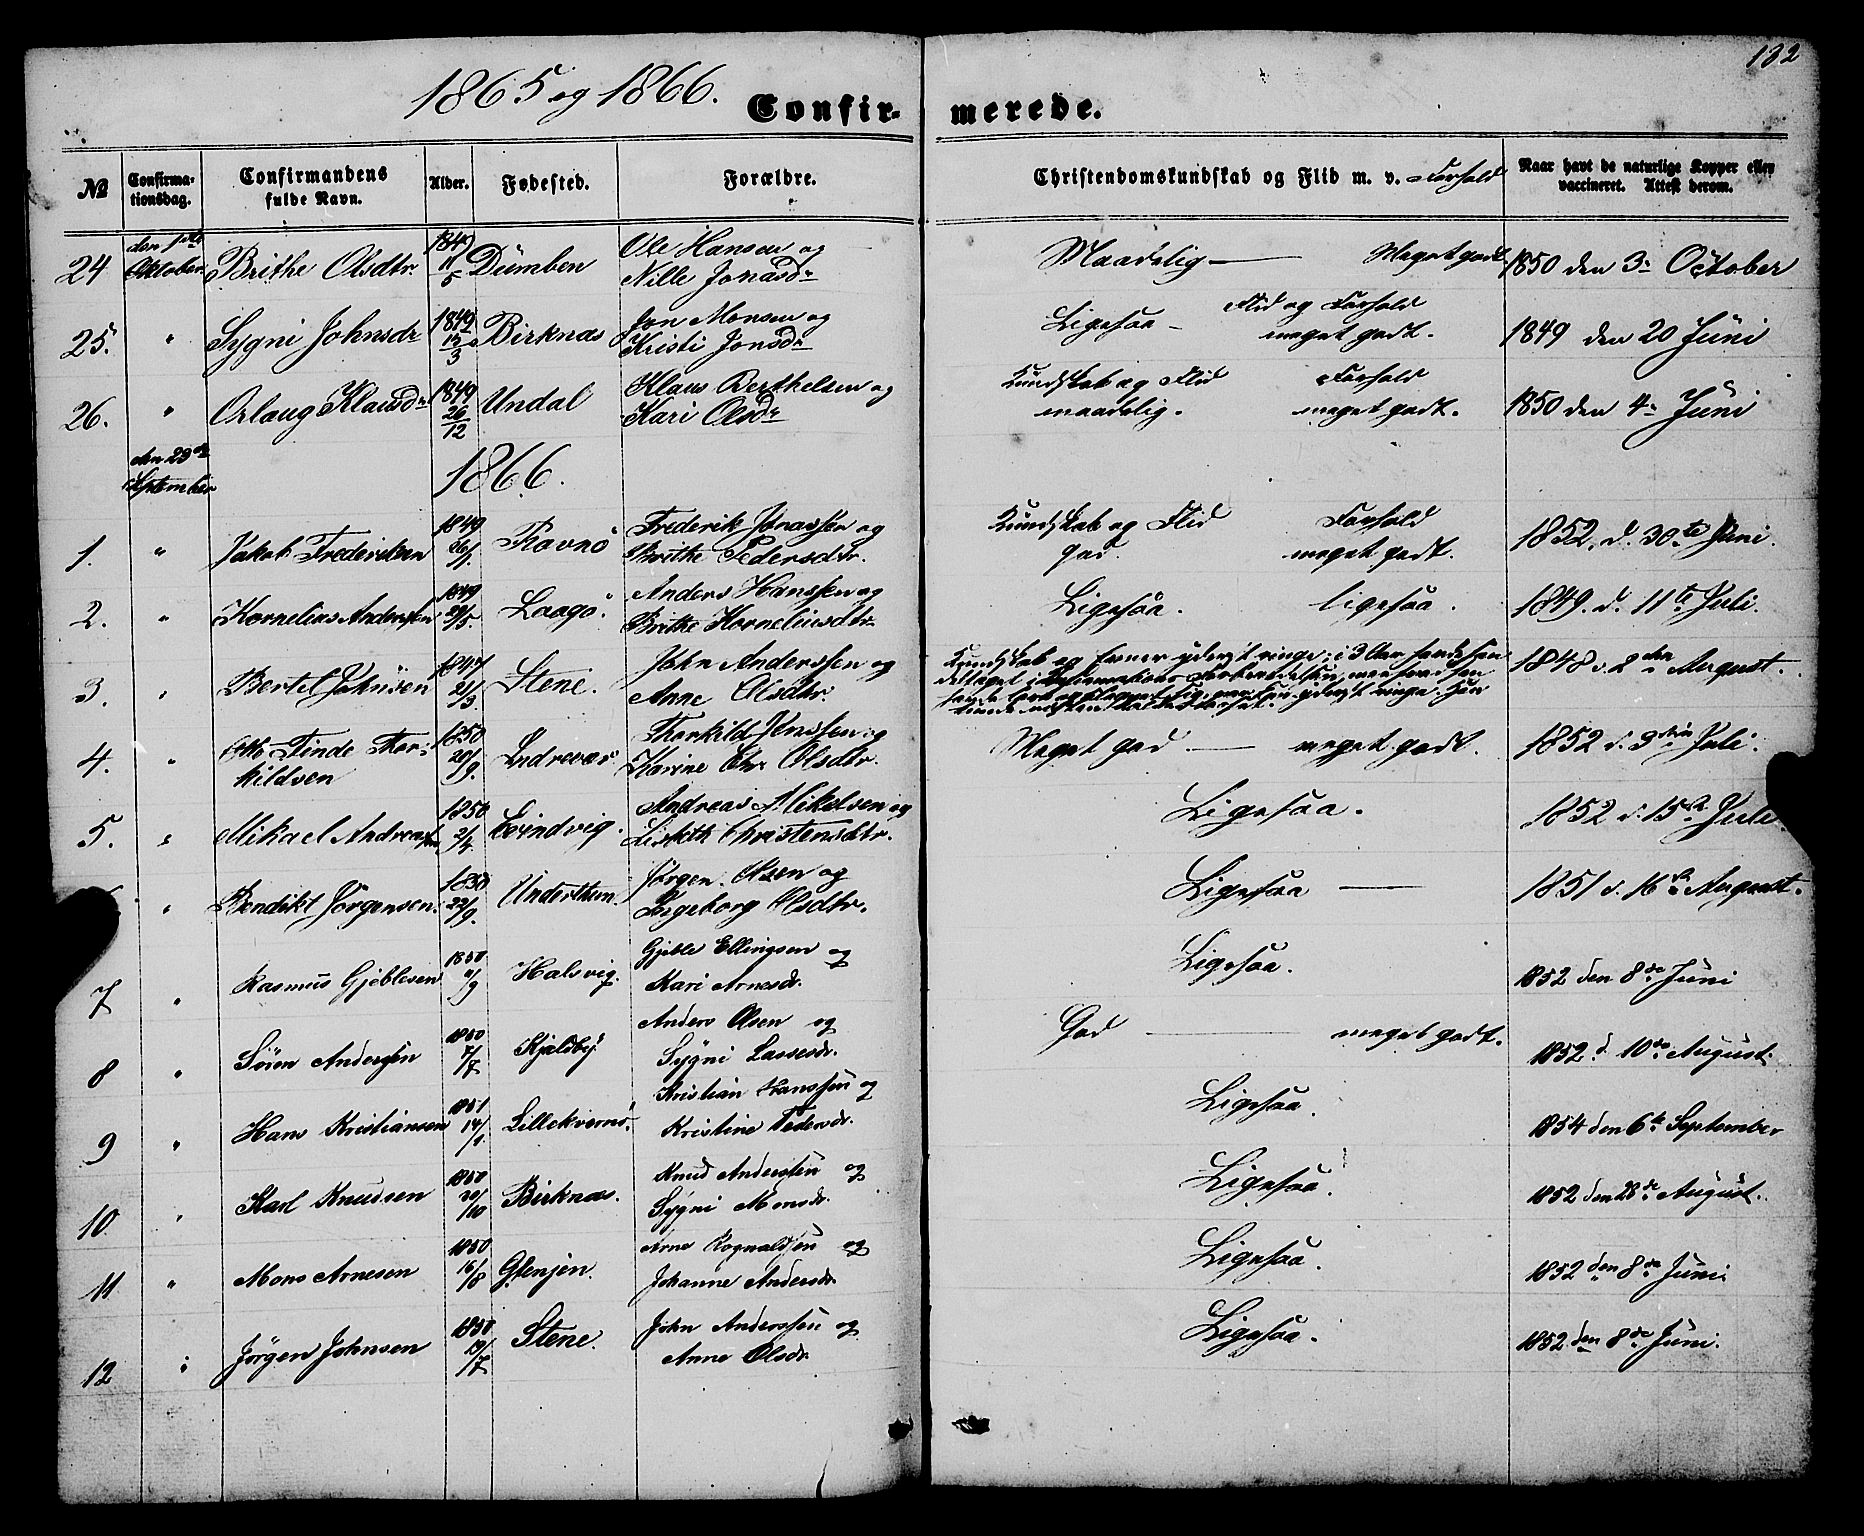 182
1865 og 1866.
Confir- merede.
No
Confirmationsdag.
Confirmandens fulde Navn.
Alder.
Fødested.
Forældre.
Christendomskundskab og Flid m. v. Forhold
Naar havt de naturlige Kopper eller vaccineret. Attest derom.
24 den 1ste Oktober Brithe Olsdtr. Dümben Ole Hansen og Nille Jonasdr Maadelig — Meget godt. 1850 den 3. October
25. " Sygni Johnsdr 1849 Birknæs Jon Monsen og Kristi Jonsdr Ligesaa — Flid og Forhold meget godt. 1849 den 20 Jüni
26. " Orlaug Klausdr 1849 26/12 Undal Klaus Berthelsen og Kari Olsdr Kündskab og Flid maadelig. Forhold meget godt. 1850 den 4. Jüni
den 23de September
1866.
1. " Jakob Frederiksen 1849 26/1. Ravnö Frederik Jonassen og Brithe Pedersdtr. Kündskab og Flid god. Forhold meget godt. 1852. d. 30te Juni.
2. " Kornelius Anderssen 1849 29/5. Laagö. Anders Hanssen og Brithe Korneliusdtr Ligesaa. ligesaa. 1849. d. 11te Juli.
3. " Bertel Johnsen 1847 21/3. Stene. John Anderssen og Anne Olsdtr. Kundskab og Evner yderst ringe; i 3 Aar havde han deltaget i Confirmations Forberedelsen, men hvad han havde lært og tilegnet sig var kun yderst ringe. 1848 d. 2den August.
4. " Tinde Thorkildsen 1850 20/9. Indrevær Thorkild Jenssen og Karine Chr. Olsdtr. Meget god — meget godt. 1852 d. 3die Juli.
5. " Mikael Andreassen 1850 2/4. Eivindvig. Andreas Mikelsen og Christensdtr. Ligesaa. 1852 d. 15de Juli
" Bendikt Jörgensen. 1850 22/9. Underthun. Jörgen Olsen og Ingeborg Olsdtr. Ligesaa — 1851 d. 16de August.
7 " Rasmus Gjeblesen 1850 /9 Halsvig. Gjeble Ellingsen og Kari Arnesdr. Ligesaa. 1852 den 8de Juni
8 " Sören Andersen 1850 7/7 Kjeldby Anders Olsen og Sygni Lassesdr. God — meget godt. 1852 d. 10de August.
9 " Hans Kristiansen 1851 14/1 Lillekvernö. Kristian Hanssen og Kristine Pedersdr. Ligesaa. 1854 den 6te September
10. " Karl Knudsen 1850 20/10 Birknæs. Knud Andersen og Sygni Monsdr. Ligesaa. 1852 den 28de August.
11 " Mons Arnesen 1850 16/8 Glenjen. Arne Rognaldsen og Johanne Andersdr. Ligesaa. 1852 den 8de Juni
12 " Jørgen Johnsen 1850 19/7 Stene. John Anderssen og Anne Olsdr. Ligesaa. 1852 den 8de Juni.